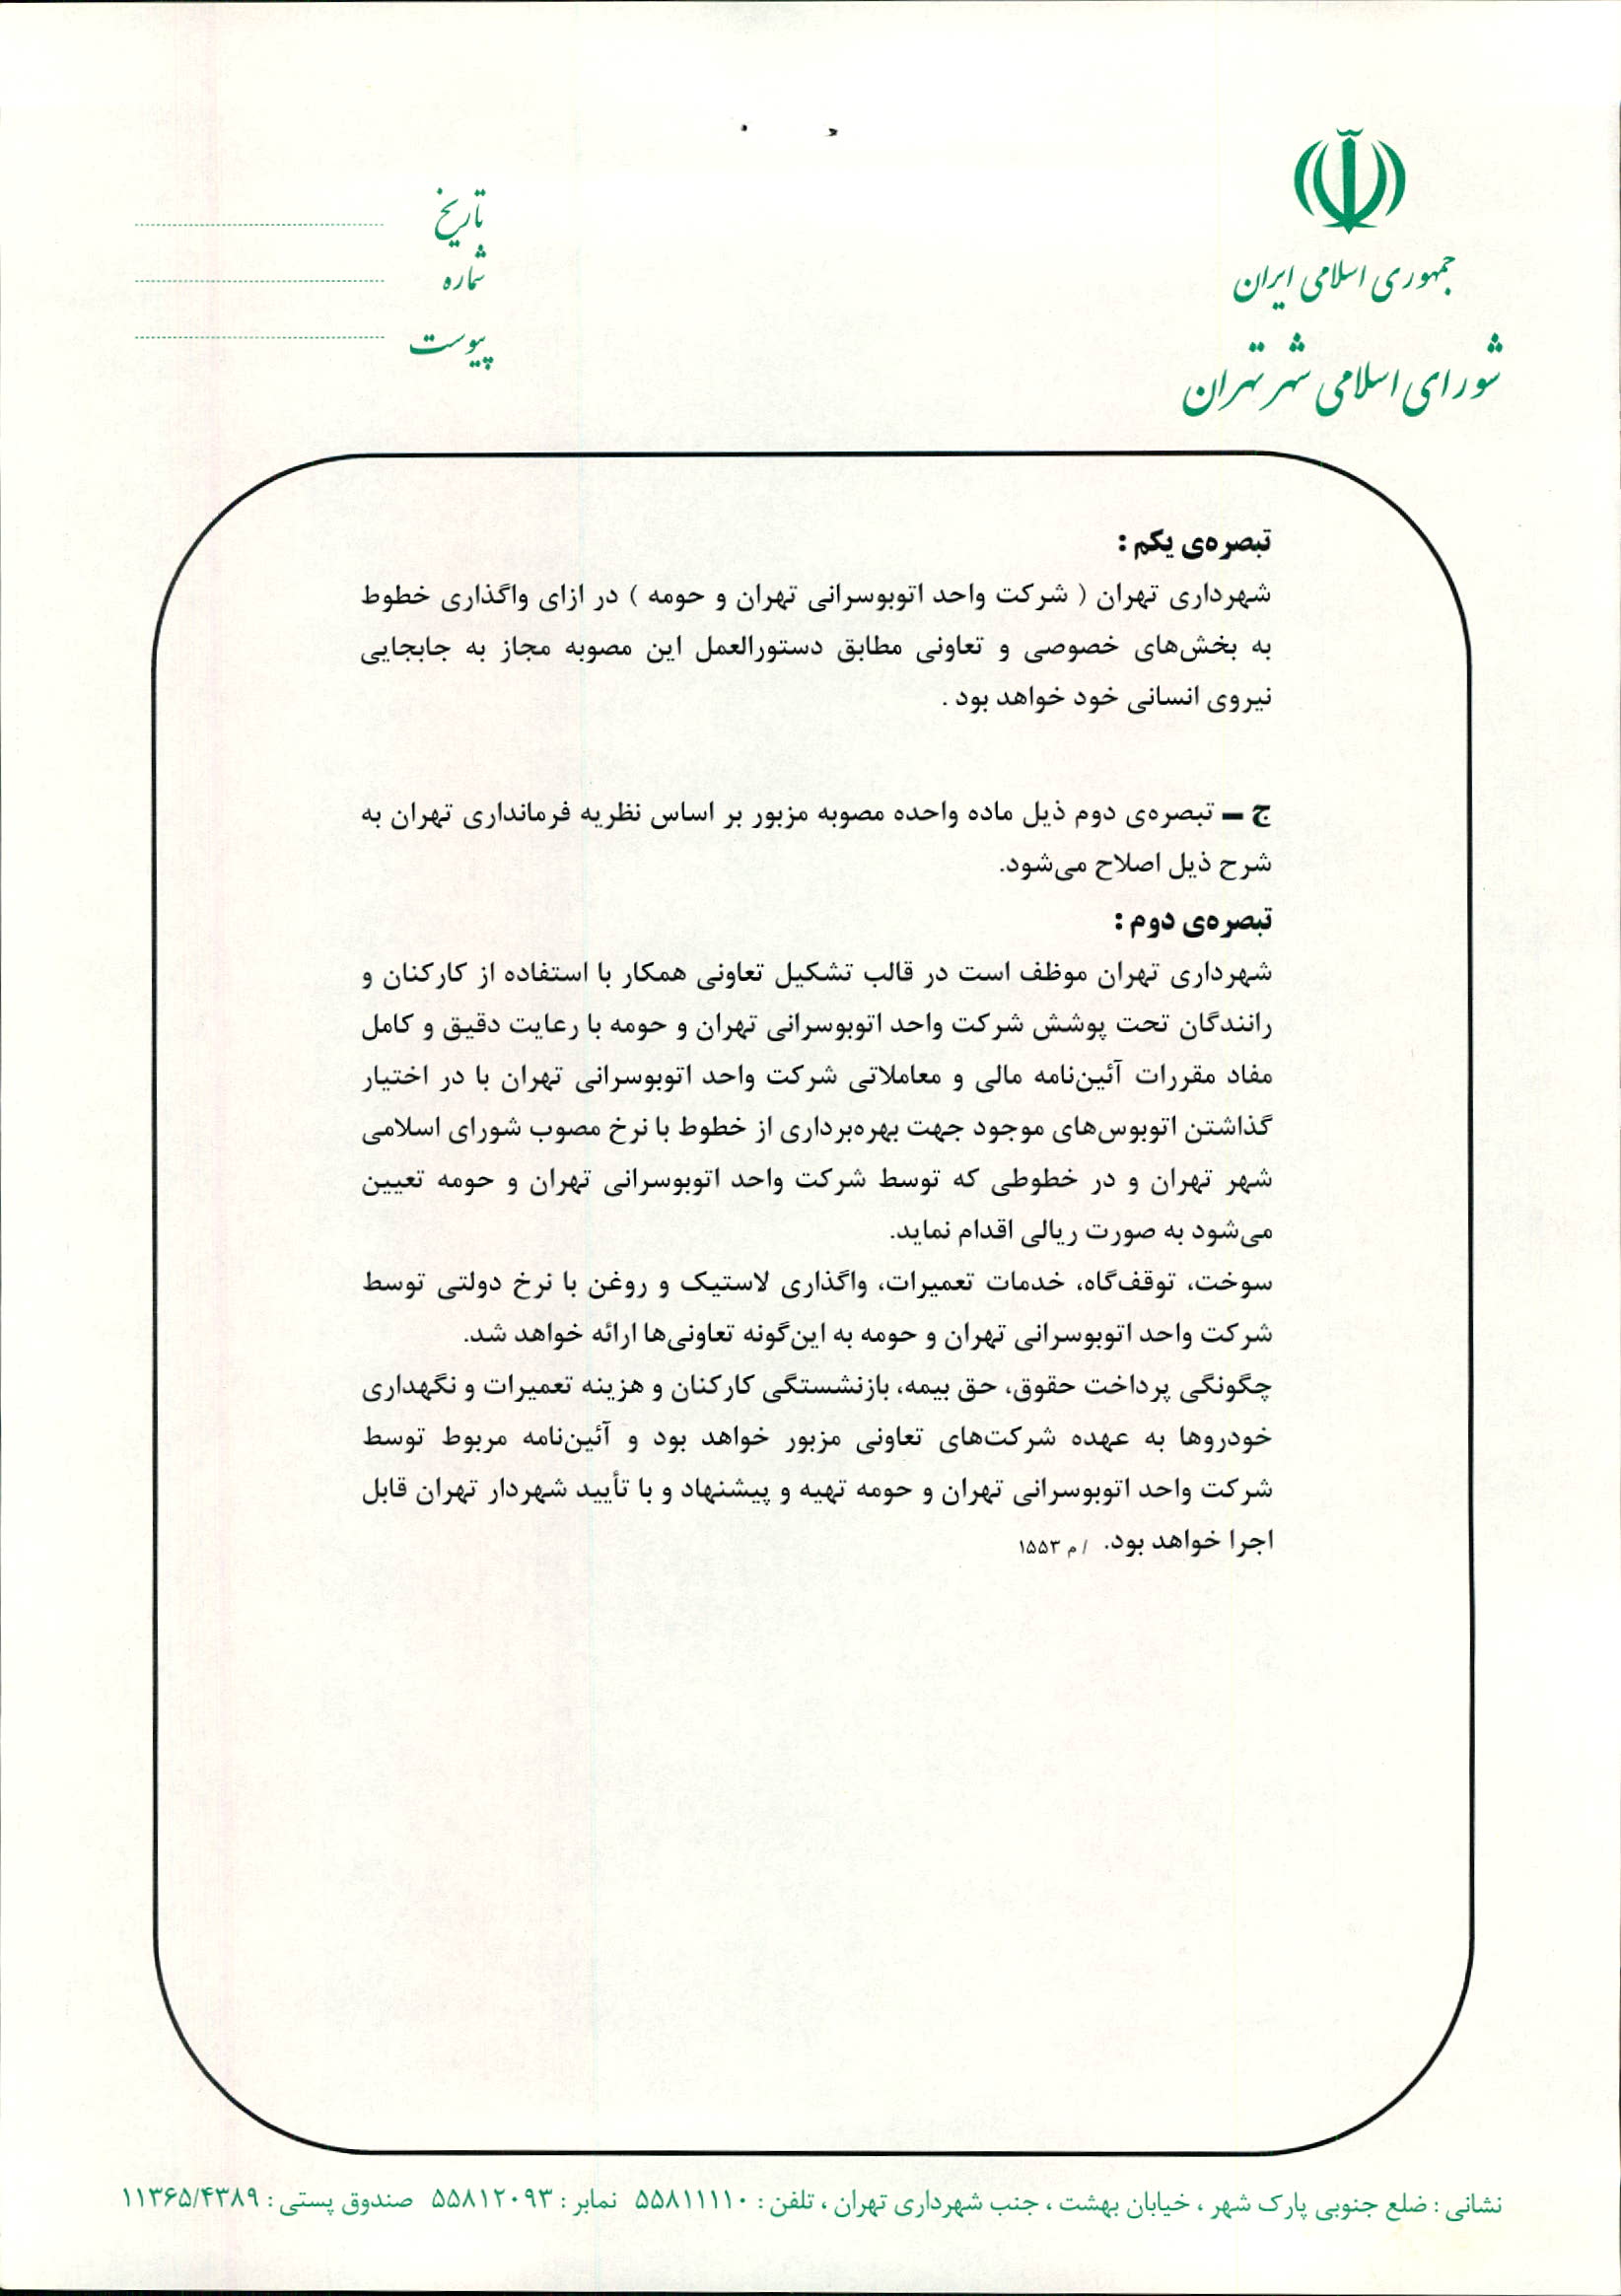 جمهوری اسلامی ایران
شورای اسلامی شهر تهران
تاریخ
شماره
پیوست
تبصره‌ی یکم :
شهرداری تهران ( شرکت واحد اتوبوسرانی تهران و حومه ) در ازای واگذاری خطوط
به بخش‌های خصوصی و تعاونی مطابق دستورالعمل این مصوبه مجاز به جابجایی
نیروی انسانی خود خواهد بود .
ج – تبصره‌ی دوم ذیل ماده واحده مصوبه مزبور بر اساس نظریه فرمانداری تهران به
شرح ذیل اصلاح می‌شود.
تبصره‌ی دوم :
شهرداری تهران موظف است در قالب تشکیل تعاونی همکار با استفاده از کارکنان و
رانندگان تحت پوشش شرکت واحد اتوبوسرانی تهران و حومه با رعایت دقیق و کامل
مفاد مقررات آئین‌نامه مالی و معاملاتی شرکت واحد اتوبوسرانی تهران با در اختیار
گذاشتن اتوبوس‌های موجود جهت بهره‌برداری از خطوط با نرخ مصوب شورای اسلامی
شهر تهران و در خطوطی که توسط شرکت واحد اتوبوسرانی تهران و حومه تعیین
می‌شود به صورت ریالی اقدام نماید.
سوخت، توقف‌گاه، خدمات تعمیرات، واگذاری لاستیک و روغن با نرخ دولتی توسط
شرکت واحد اتوبوسرانی تهران و حومه به این‌گونه تعاونی‌ها ارائه خواهد شد.
چگونگی پرداخت حقوق، حق بیمه، بازنشستگی کارکنان و هزینه تعمیرات و نگهداری
خودروها به عهده شرکت‌های تعاونی مزبور خواهد بود و آئین‌نامه مربوط توسط
شرکت واحد اتوبوسرانی تهران و حومه تهیه و پیشنهاد و با تأیید شهردار تهران قابل
اجرا خواهد بود. / م ۱۵۵۳
نشانی : ضلع جنوبی پارک شهر ، خیابان بهشت ، جنب شهرداری تهران ، تلفن : ۵۵۸۱۱۱۱۰ نمابر : ۵۵۸۱۲۰۹۳ صندوق پستی : ۱۱۳۶۵/۴۳۸۹